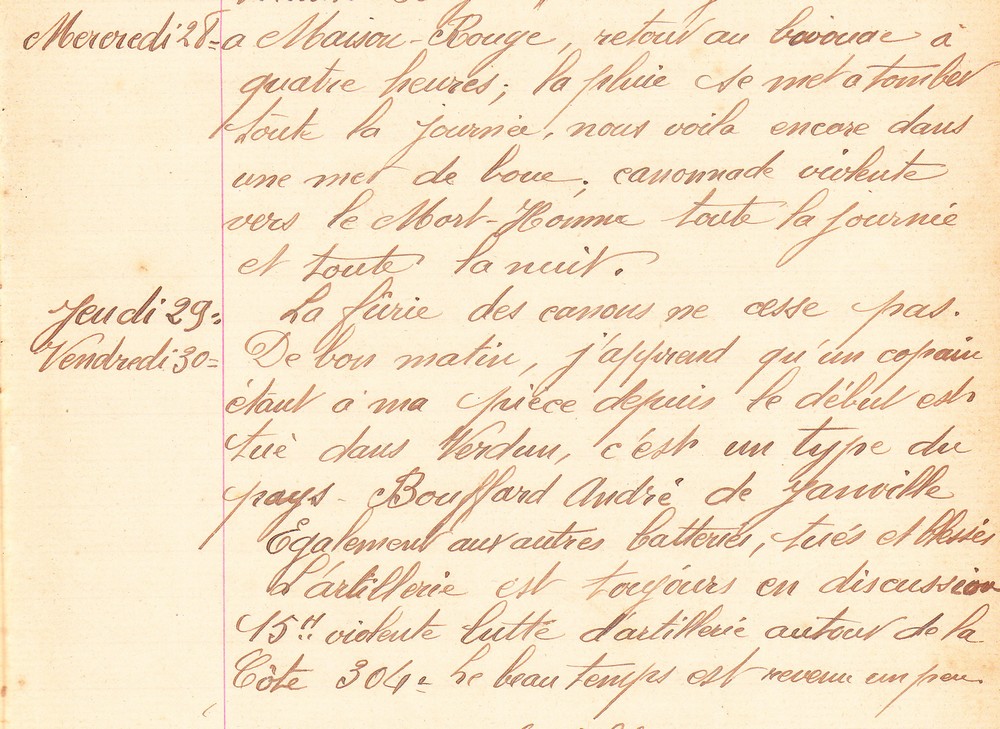 Mercredi 28= a Maison-Rouge, retour au bivouac à
quatre heures; la pluie se met a tomber
toute la journée, nous voila encore dans
une mer de boue; canonnade violente
vers le Mort-Homme toute la journée
et toute la nuit.
Jeudi 29= La fûrie des canons ne cesse pas.
Vendredi 30= De bon matin, j'apprend qu'un copain
étant à ma pièce depuis le début est
tué dans Verdun, c'est un type du
pays - Bouffard André de Janville
Egalement aux autres batteries, tués et blessés
L'artillerie est toujours en discussion
15H violente lutte d'artillerie autour de la
Côte 304= Le beau temps est revenu un peu.